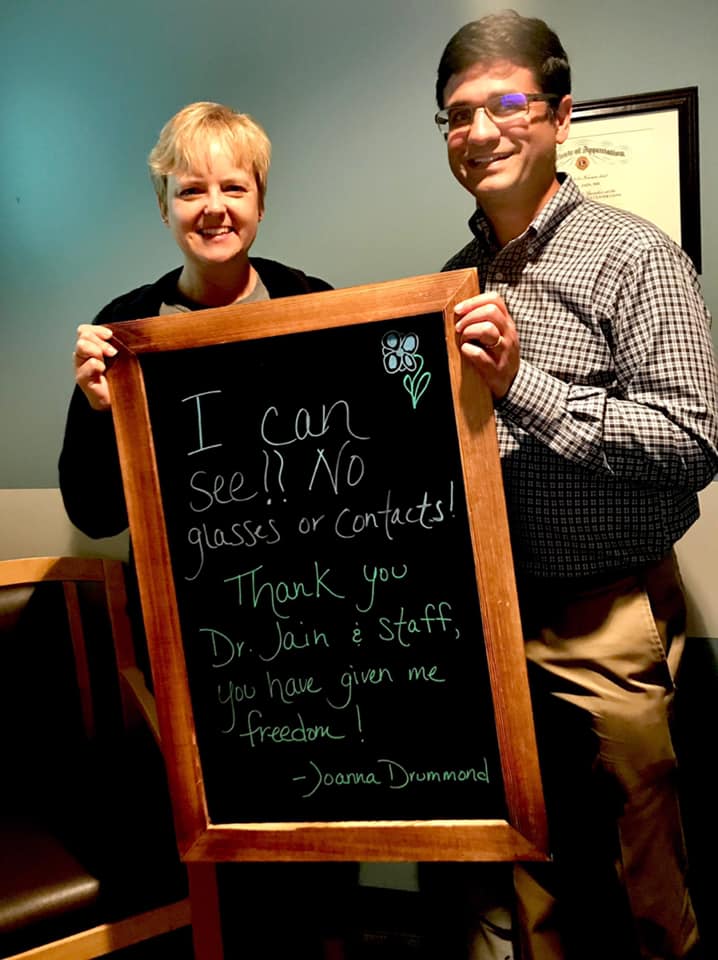 I can
see!! No
glasses or contacts!
Thank you
Dr. Jain & staff,
you have given me
freedom!
-Joanna Drummond
of Appreciation